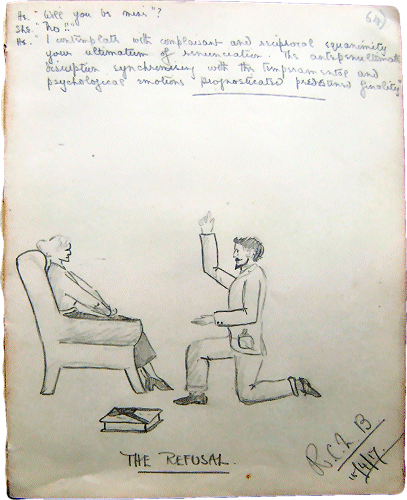 He. "Will you be mine"?
She. "No"!!
He. "I contemplate with complaisant and reciprocal equanimity
your ultimatum of renunciation. The antepenultimate
disruption synchronising with the temperamental and
psychological emotions prognosticated predestined finality"
THE REFUSAL.
15/4/17.